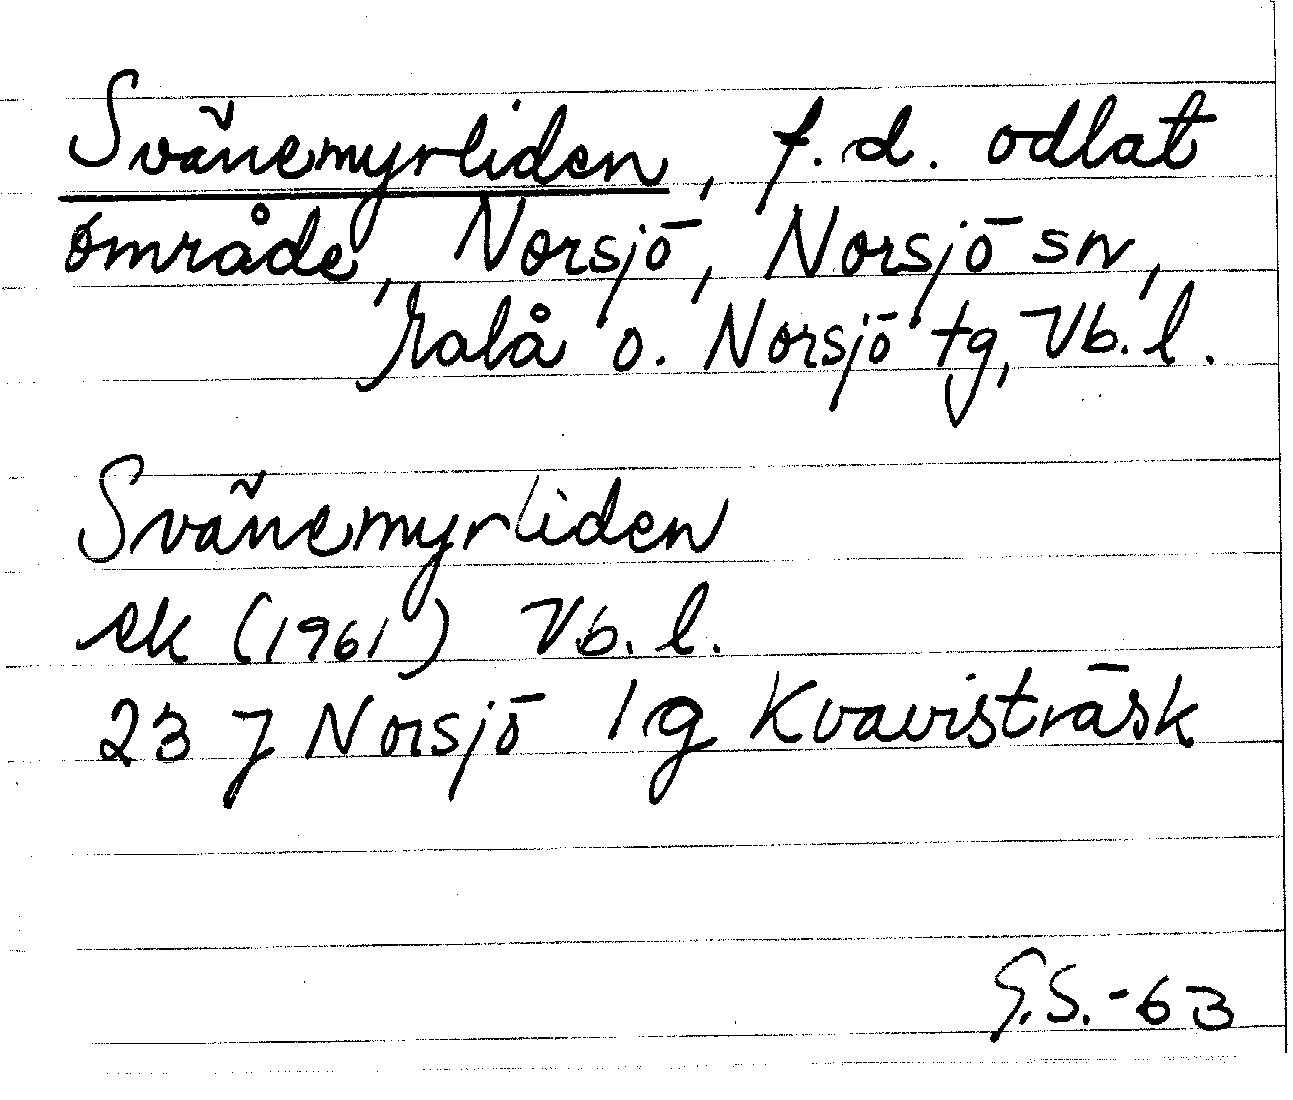 Svänemyrliden, f.d. odlat
område, Norsjö, Norsjö sn,
Malå o. Norsjö tg, Vb. l.
Svänemyrliden
ek (1961) Vb. l.
23 J Norsjö 1g Kvavisträsk
G.S.-63